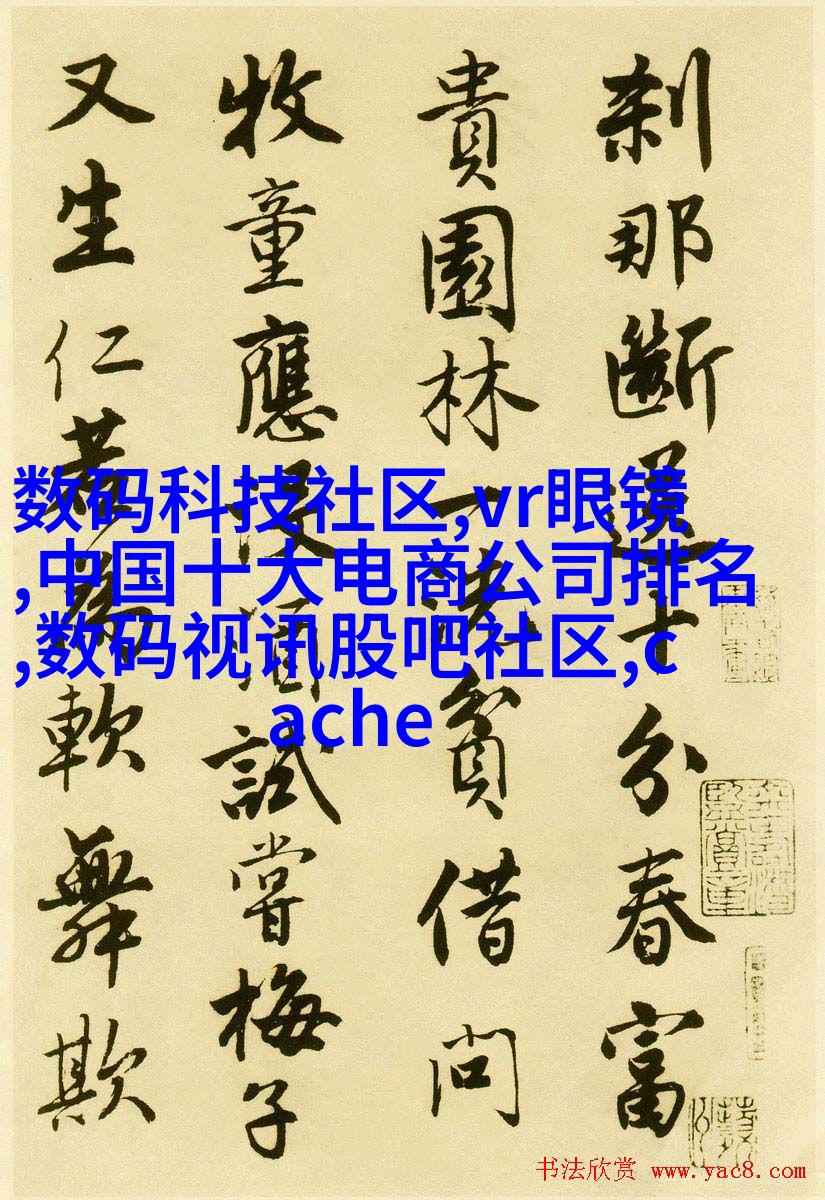 刹那斷送十分春富
貴園林一洗貧借問
牧童應沒酒試嘗梅子
又生仁若為軟舞欺
数码科技社区,vr眼镜
,中国十大电商公司排名
,数码视讯股吧社区,c
ache
书法欣赏 www.yac8.com